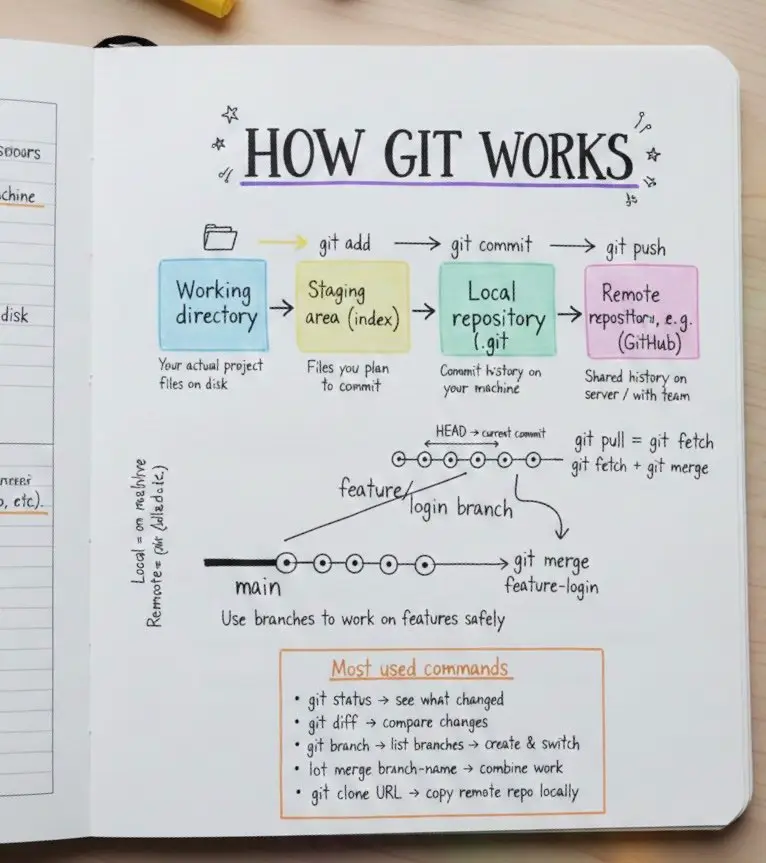 HOW GIT WORKS
git add
git commit
git push
Working
directory
Staging
area (index)
Local
repository
(.git
Remote
e.g.
(GitHub)
Your actual project
files on disk
Files you plan
to commit
Commit history on
your machine
Shared history on
server / with team
HEAD → current commit
git pull = git fetch
git fetch + git merge
feature/
login branch
main
git merge
feature-login
Use branches to work on features safely
Local = on
Remote =
Most used commands
• git status → see what changed
• git diff → compare changes
• git branch → list branches → create & switch
• lot merge branch-name → combine work
• git clone URL → copy remote repo locally
chine
disk
etc).